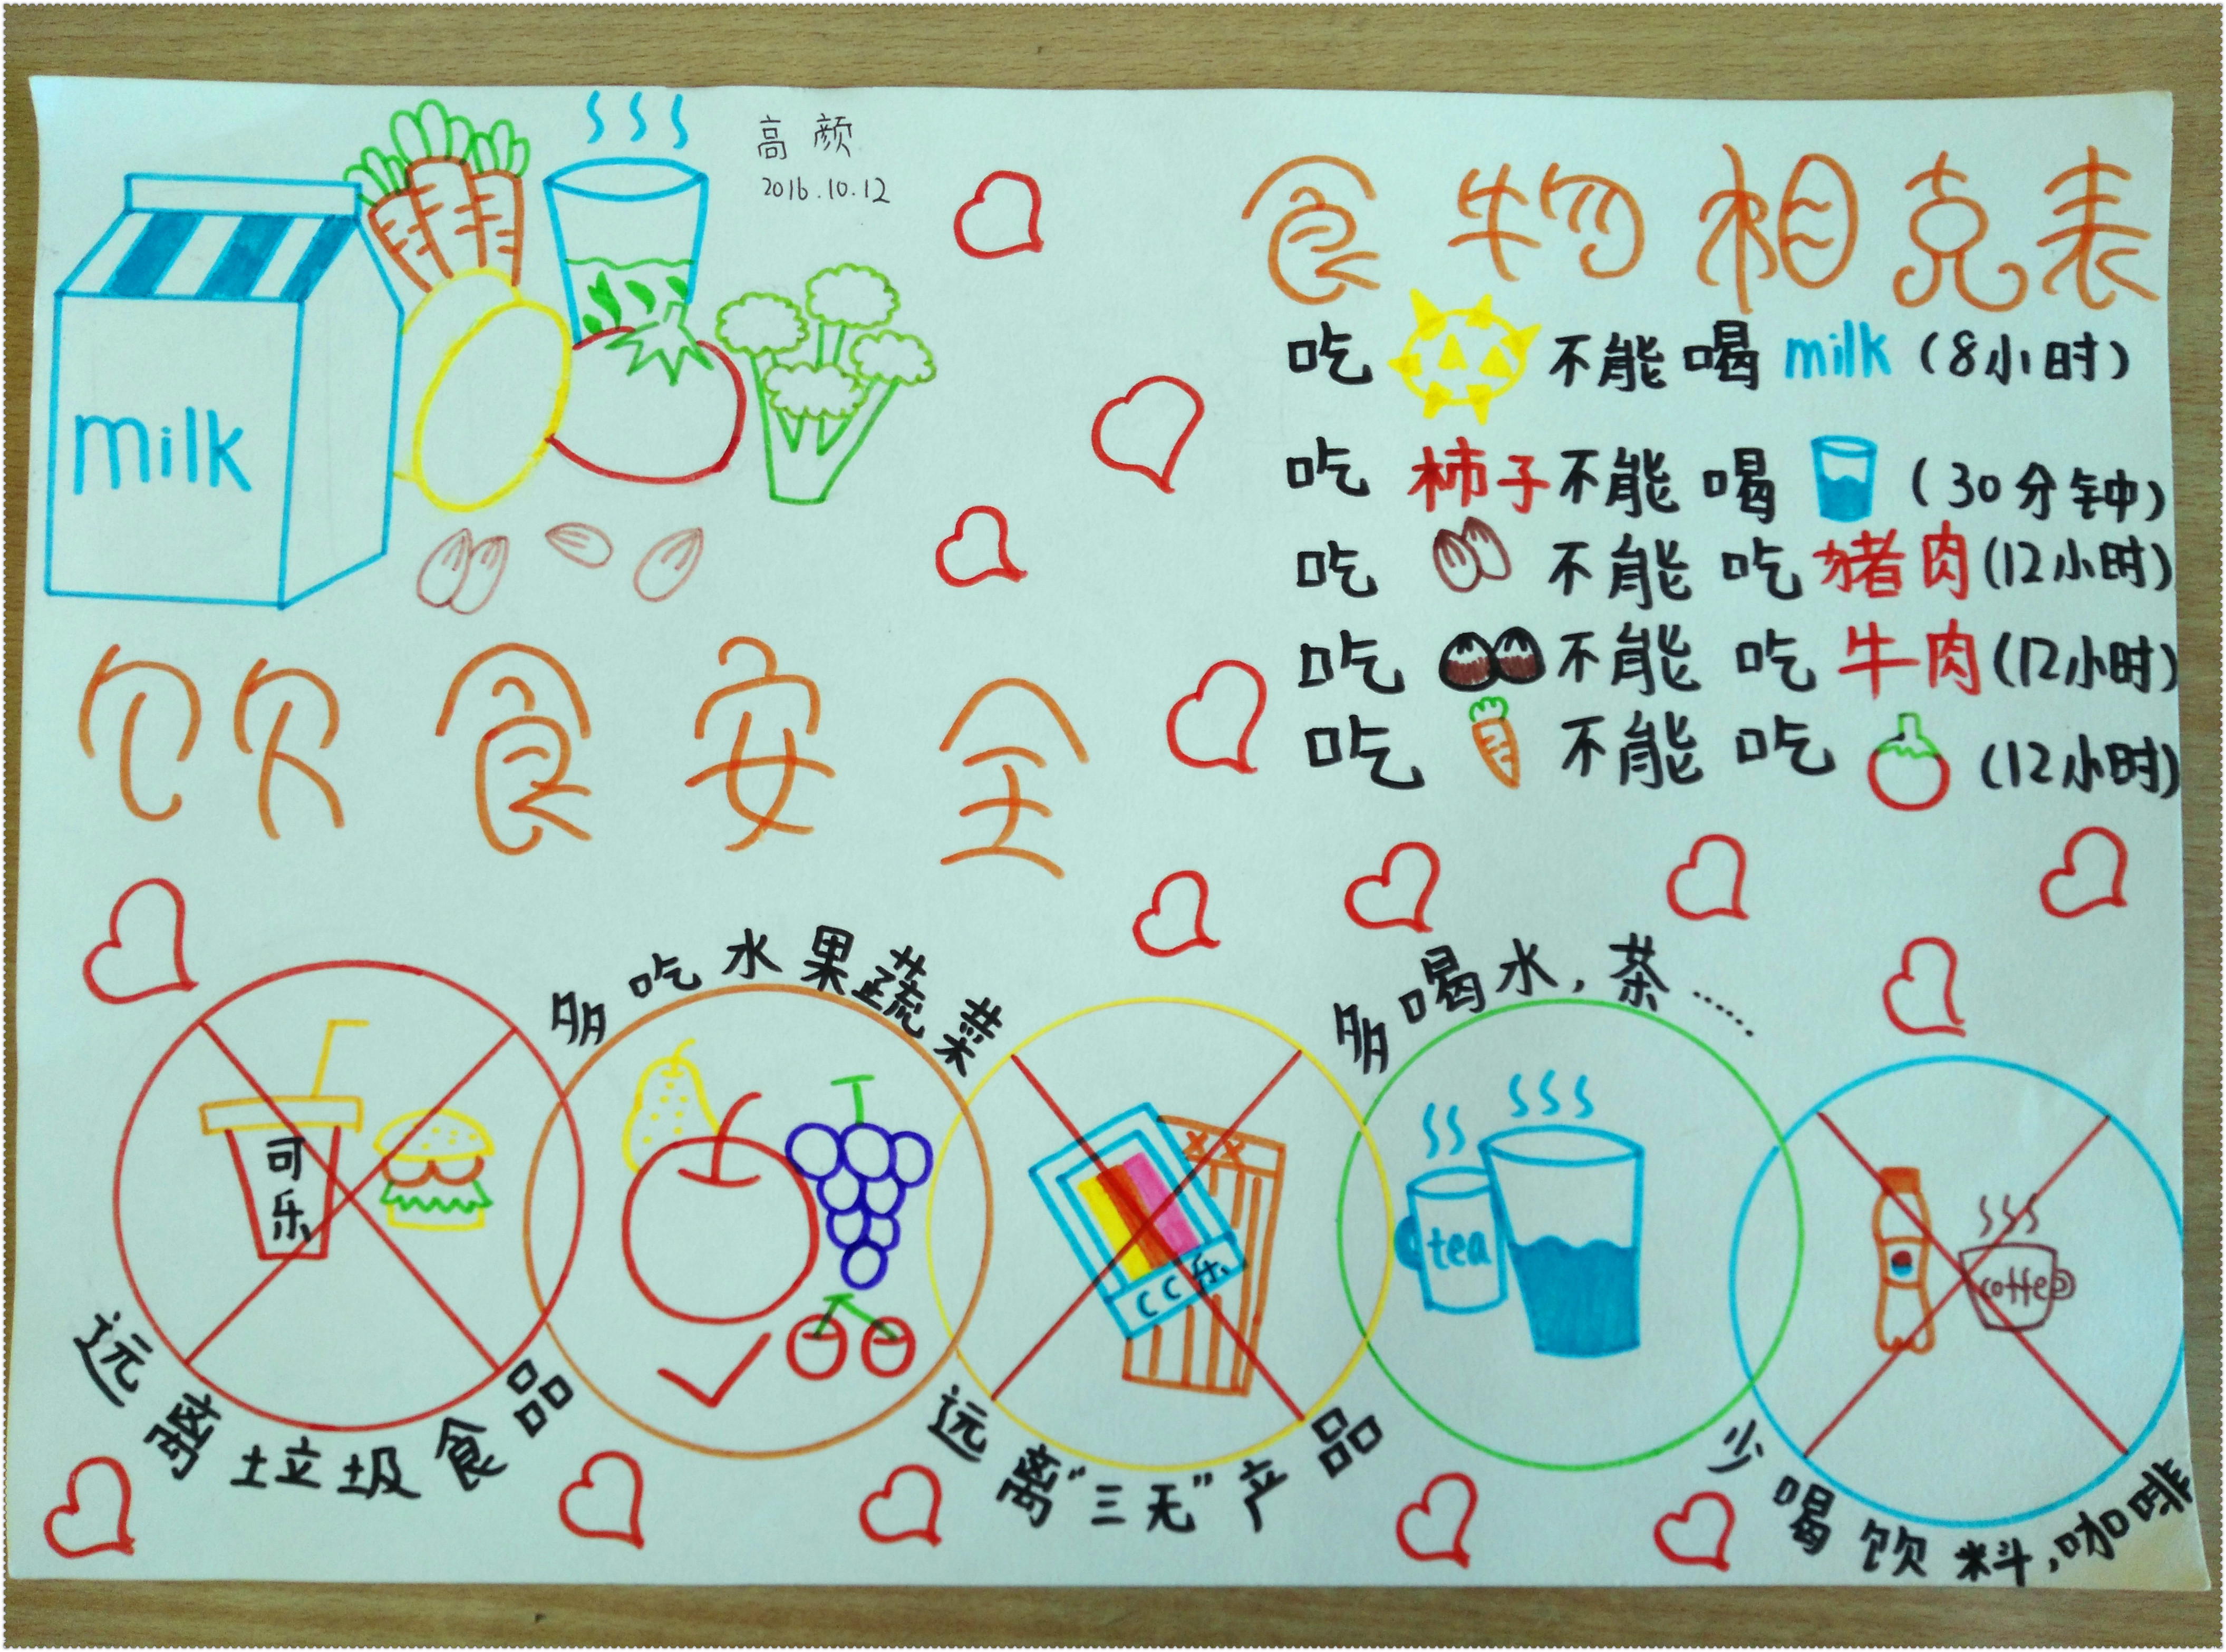 高颜
2016.10.12
食物相克表
吃 不能喝milk(8小时)
吃柿子不能喝 (30分钟)
吃 不能吃猪肉(12小时)
吃 不能吃牛肉(12小时)
吃 不能吃 (12小时)
milk
饮食安全
多吃水果蔬菜
多喝水,茶……
可乐
CC乐
tea
coffee
远离垃圾食品
远离"三无"产品
少喝饮料,咖啡